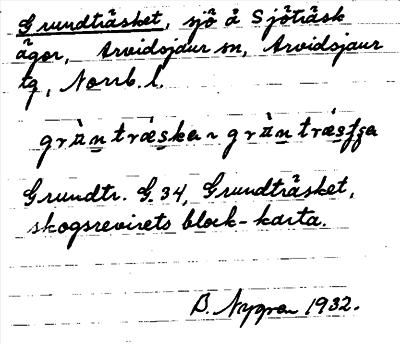 Grundträsket, sjö å Sjöträsk
ägor, Arvidsjaur sn, Arvidsjaur
tg, Norrb. l.
gràn træska ~ gràn træsʃʃa
Grundtr. G. 34, Grundträsket,
skogsrevirets block-karta.
B. Nygren 1932.